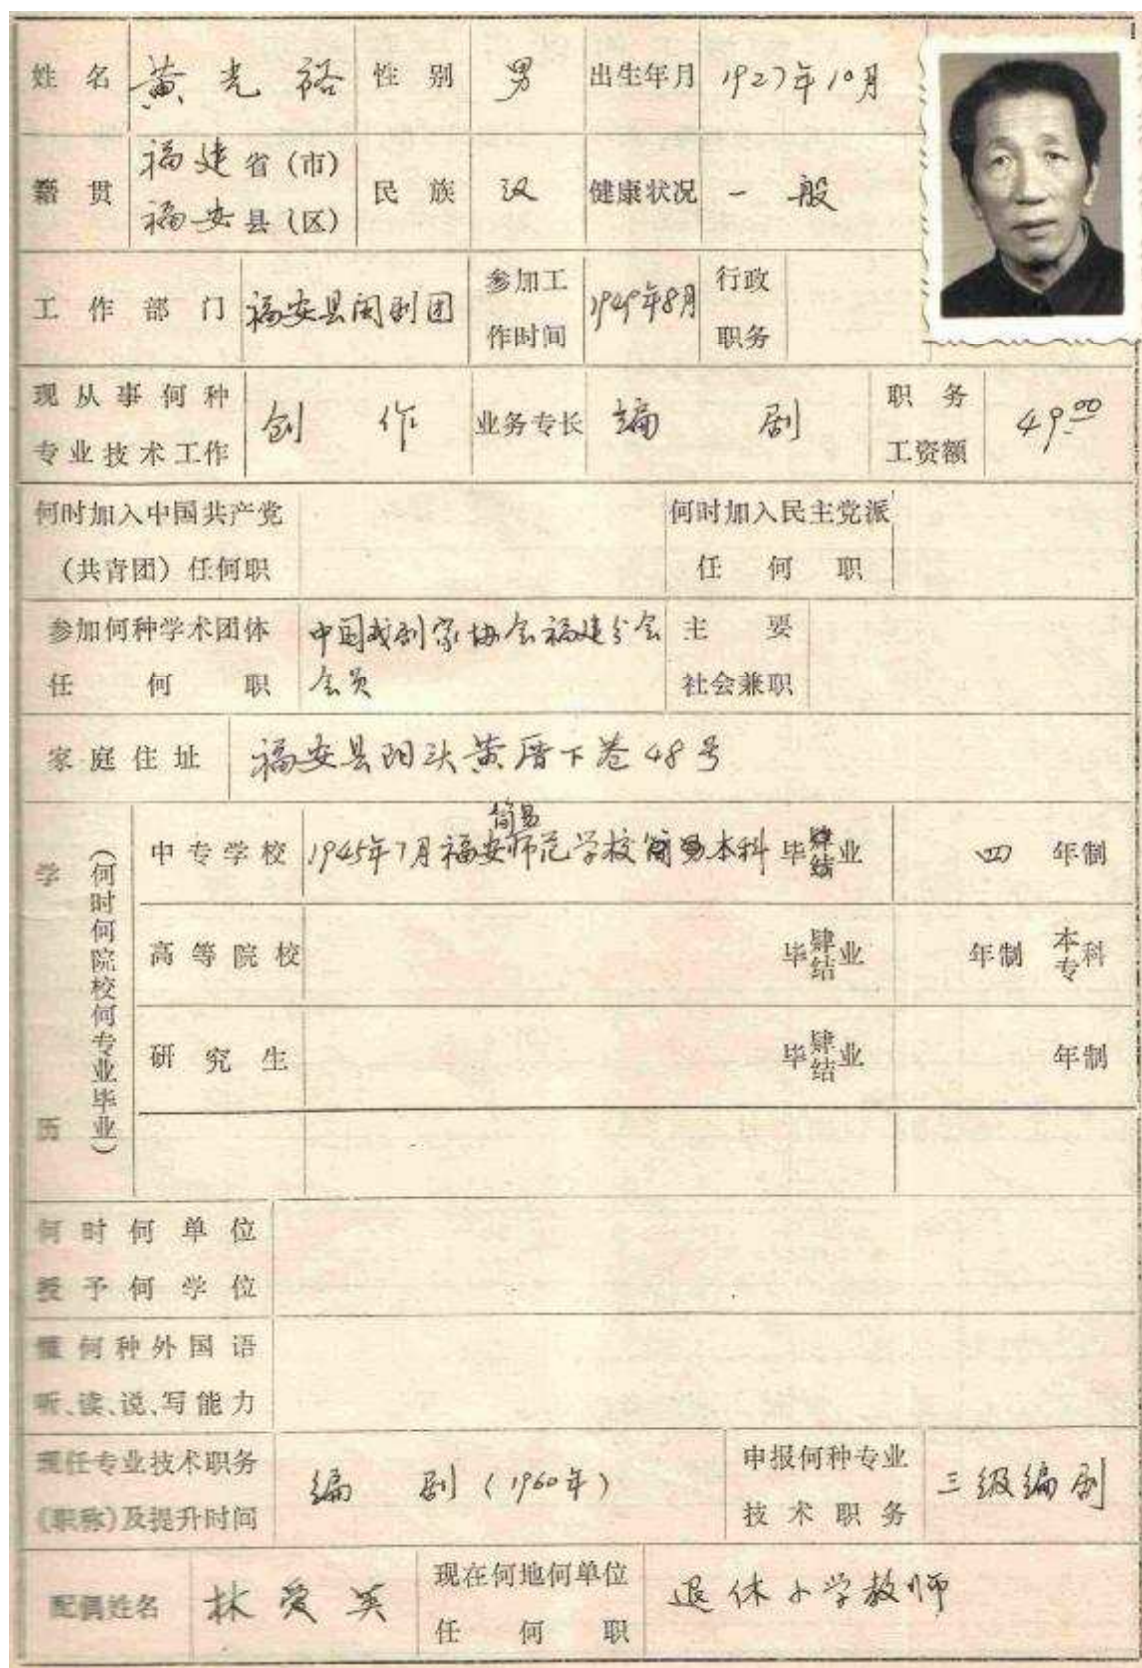 姓名 黄光裕 性别 男 出生年月 1927年10月
籍贯 福建省(市) 福安县(区) 民族 汉 健康状况 一般
工作部门 福安县闽剧团 参加工作时间 1949年8月 行政职务
现从事何种专业技术工作 创作 业务专长 编剧 职务工资额 49.00
何时加入中国共产党(共青团)任何职 何时加入民主党派任何职
参加何种学术团体任何职 中国戏剧家协会福建分会会员 主要社会兼职
家庭住址 福安县阳头黄厝下巷48号
学历 (何时何院校何专业毕业)
简易
中专学校 1945年7月福安师范学校简易本科 毕肄结业 四年制
高等院校 毕肄结业 年制 本专科
研究生 毕肄结业 年制
何时何单位授予何学位
懂何种外国语
听、读、说、写能力
现任专业技术职务(职称)及提升时间 编剧(1960年) 申报何种专业技术职务 三级编剧
配偶姓名 林爱英 现在何地何单位任何职 退休小学教师